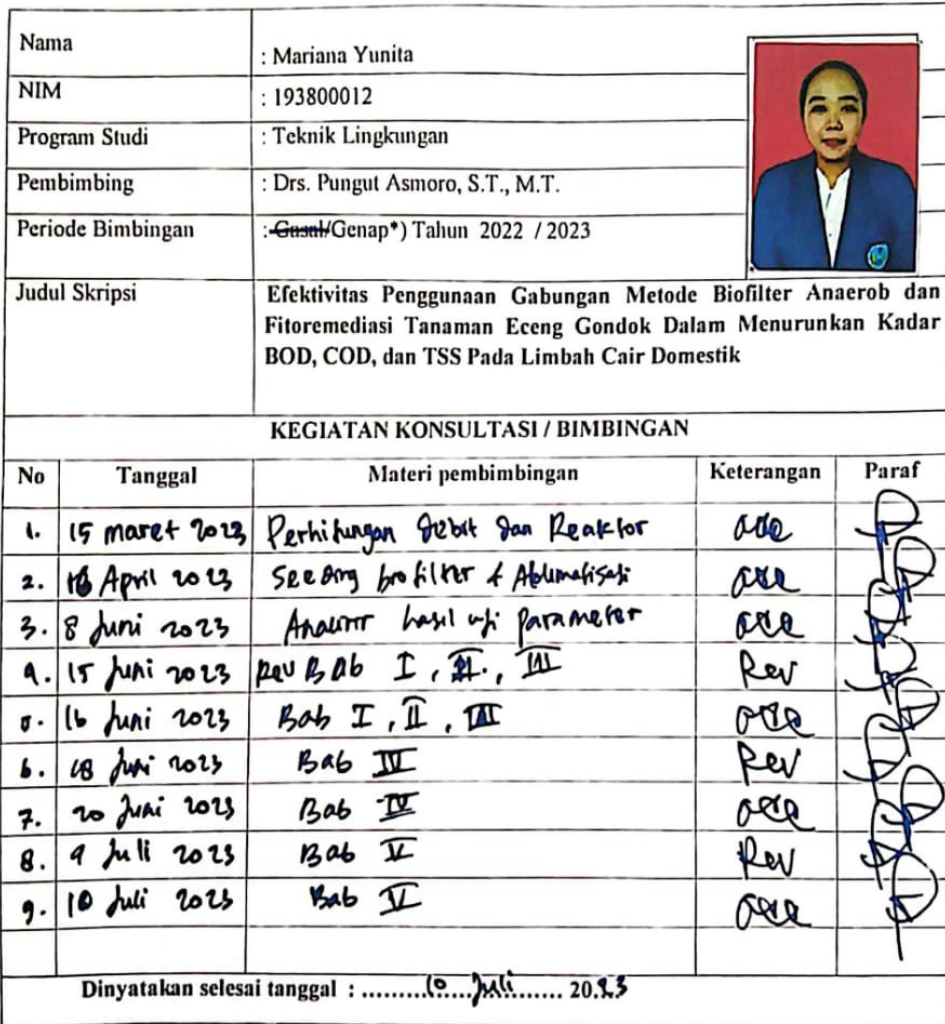 Nama : Mariana Yunita
NIM : 193800012
Program Studi : Teknik Lingkungan
Pembimbing : Drs. Pungut Asmoro, S.T., M.T.
Periode Bimbingan : Gasal/Genap*) Tahun 2022 / 2023
Judul Skripsi Efektivitas Penggunaan Gabungan Metode Biofilter Anaerob dan
Fitoremediasi Tanaman Eceng Gondok Dalam Menurunkan Kadar
BOD, COD, dan TSS Pada Limbah Cair Domestik
KEGIATAN KONSULTASI / BIMBINGAN
No Tanggal Materi pembimbingan Keterangan Paraf
1. 15 maret 2023 Perhitungan debit dan Reaktor acc
2. 16 April 2023 Seeding biofilter & Aklimatisasi acc
3. 8 Juni 2023 hasil uji Parameter acc
4. 15 Juni 2023 Rev Bab I, II, III Rev
5. 16 Juni 2023 Bab I, II, III acc
6. 18 Juni 2023 Bab IV Rev
7. 20 Juni 2023 Bab IV acc
8. 9 Juli 2023 Bab V Rev
9. 10 Juli 2023 Bab V acc
Dinyatakan selesai tanggal : .........10....Juli........ 20.23